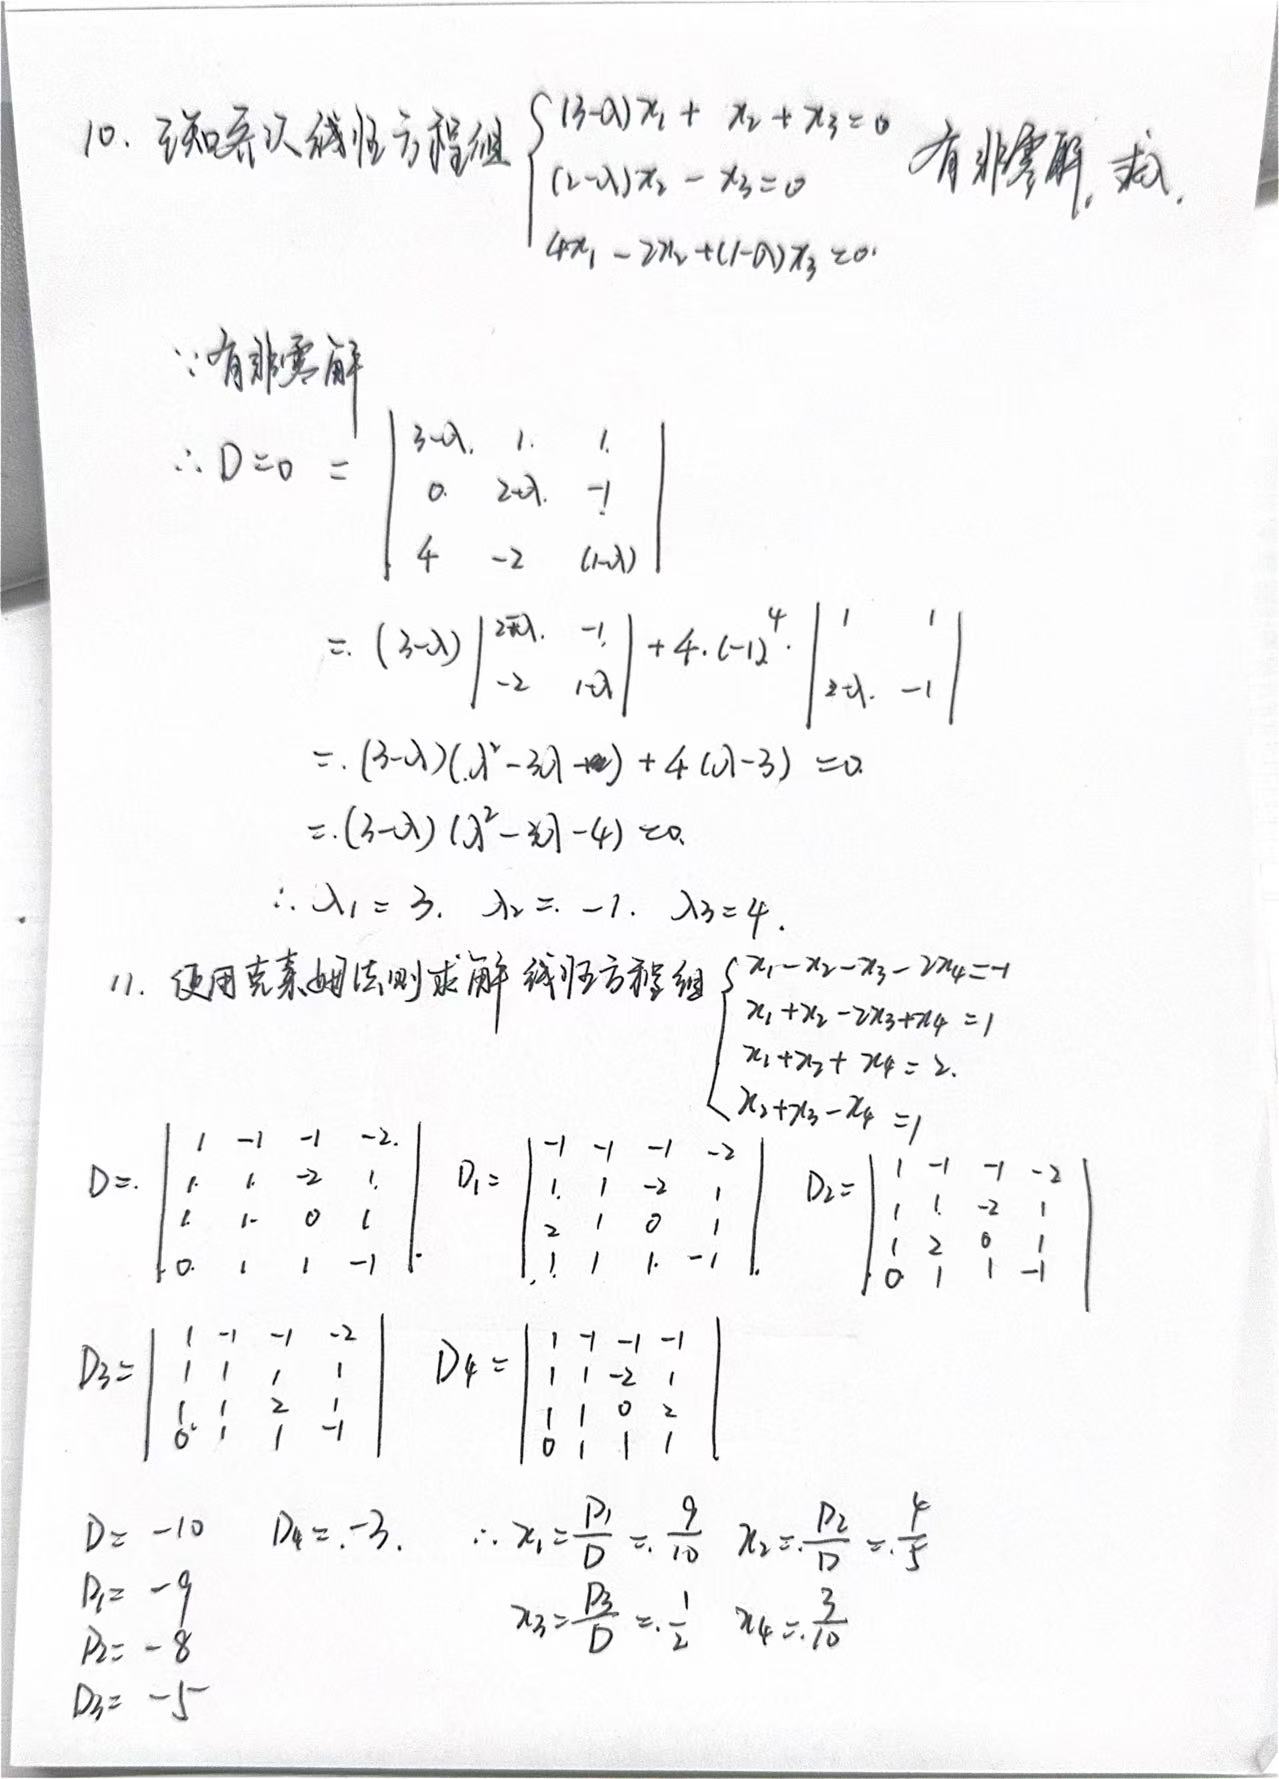 10. 已知齐次线性方程组 { (3-λ)x₁ + x₂ + x₃ = 0 有非零解, 求λ.
(2-λ)x₂ - x₃ = 0
4x₁ - 2x₂ + (1-λ)x₃ = 0.
∵ 有非零解
∴ D = 0 = | 3-λ. 1. 1. |
| 0. 2-λ. -1 |
| 4 -2 (1-λ) |
= (3-λ) | 2-λ. -1 | + 4·(-1)⁴· | 1 1 |
| -2 1-λ | | 2-λ. -1 |
= (3-λ)(λ² - 3λ ) + 4(λ-3) = 0
= (3-λ)(λ² - 3λ - 4) = 0.
∴ λ₁ = 3. λ₂ = -1. λ₃ = 4.
11. 使用克莱姆法则求解线性方程组 { x₁ - x₂ - x₃ - 2x₄ = -1
x₁ + x₂ - 2x₃ + x₄ = 1
x₁ + x₂ + x₄ = 2.
x₂ + x₃ - x₄ = 1
D = | 1 -1 -1 -2. | D₁ = | -1 -1 -1 -2 | D₂ = | 1 -1 -1 -2 |
| 1. 1. -2 1. | | 1. 1 -2 1 | | 1 1. -2 1 |
| 1. 1. 0 1 | | 2 1 0 1 | | 1 2 0 1 |
| 0. 1 1 -1 | | 1. 1 1. -1 | | 0. 1 1 -1 |
D₃ = | 1 -1 -1 -2 | D₄ = | 1 -1 -1 -1 |
| 1 1 1 1 | | 1 1 -2 1 |
| 1 1 2 1 | | 1 1 0 2 |
| 0 1 1 -1 | | 0 1 1 1 |
D = -10 D₄ = -3. ∴ x₁ = D₁/D = 9/10 x₂ = D₂/D = 4/5
D₁ = -9
x₃ = D₃/D = 1/2 x₄ = 3/10
D₂ = -8
D₃ = -5